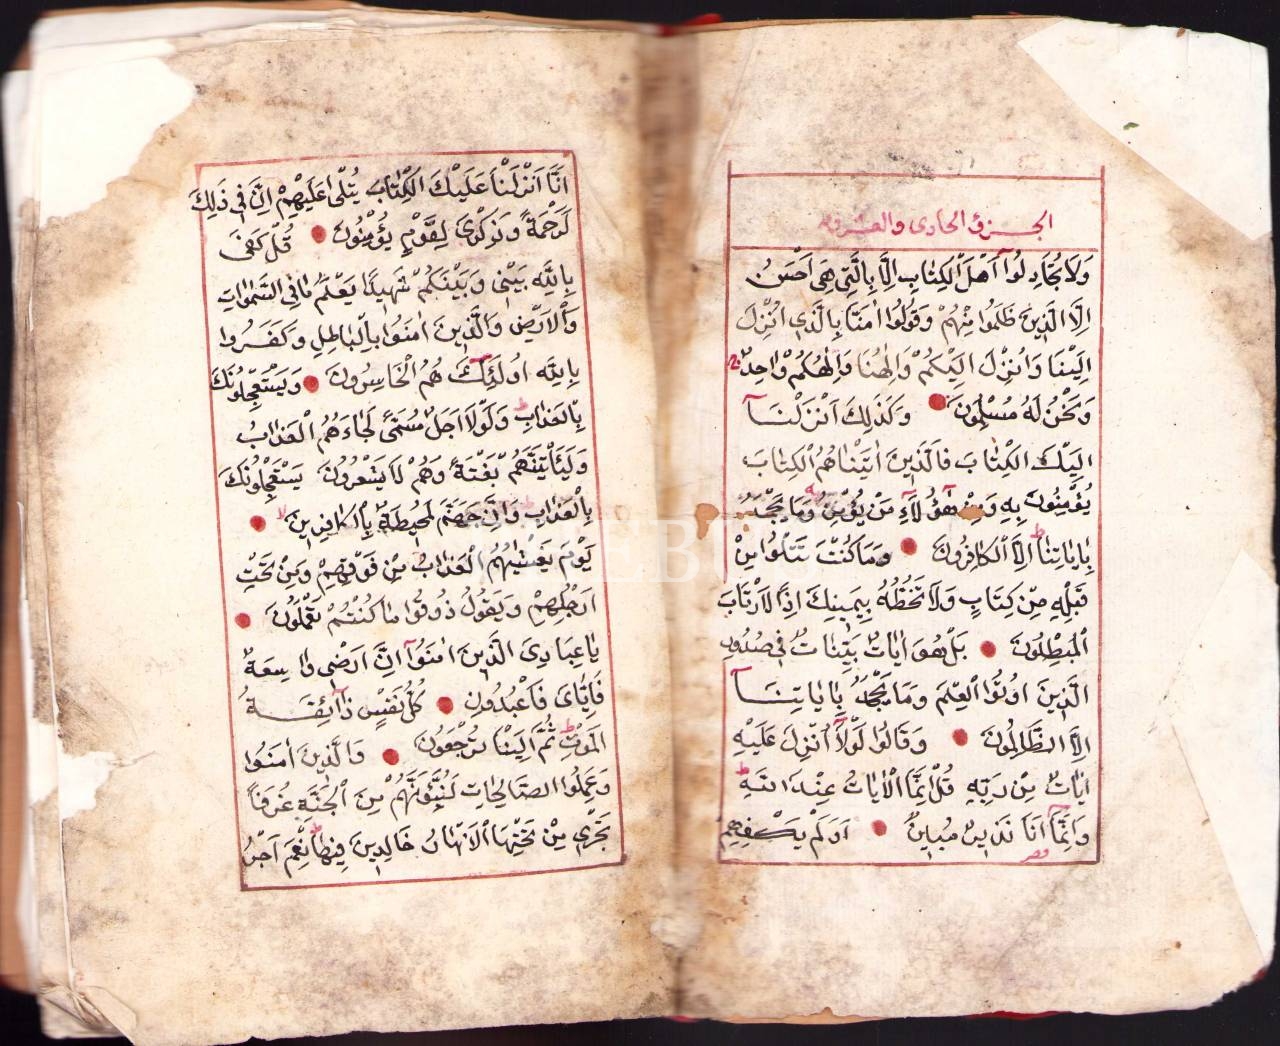 الجزؤ الحادى والعشرون
وَلَا تُجَادِلُوآ اَهْلَ الْكِتٰابِ اِلَّا بِالَّتِى هِىَ اَحْسَنُ
اِلَّا الَّذِينَ ظَلَمُوا مِنْهُمْ وَقُولُوا اٰمَنَّا بِالَّذِى اُنْزِلَ
اِلَيْنَا وَاُنْزِلَ اِلَيْكُمْ وَاِلٰهُنَا وَاِلٰهُكُمْ وٰاحِدٌ
وَنَحْنُ لَهُ مُسْلِمُونَ وَكَذٰلِكَ اَنْزَلْنَآ
اِلَيْكَ الْكِتٰابَ فَالَّذِينَ اٰتَيْنٰاهُمُ الْكِتٰابَ
يُؤْمِنُونَ بِهِ وَمِنْ هٰٓؤُلَآءِ مَنْ يُؤْمِنُ بِه وَمَا يَجْحَدُ
بِاٰيٰاتِنٰا اِلَّا الْكَافِرُونَ وَمَا كُنْتَ تَتْلُوا مِنْ
قَبْلِهِ مِنْ كِتَابٍ وَلَا تَخُطُّهُ بِيَمِينِكَ اِذًا لَارْتَابَ
الْمُبْطِلُونَ بَلْ هُوَ اٰيٰاتٌ بَيِّنٰاتٌ فِى صُدُورِ
الَّذِينَ اوُتُوا الْعِلْمَ وَمَا يَجْحَدُ بِاٰيٰاتِنَآ
اِلَّا الظَّالِمُونَ وَقَالُوا لَوْلَآ اُنْزِلَ عَلَيْهِ
اٰيٰاتٌ مِنْ رَبِّهِ قُلْ اِنَّمَا الْاٰيٰاتُ عِنْدَ اللّٰهِ
وَاِنَّمَآ اَنَا نَذِيرٌ مُبِينٌ اَوَلَمْ يَكْفِهِمْ
اَنَّا اَنْزَلْنَا عَلَيْكَ الْكِتٰابَ يُتْلٰى عَلَيْهِمْ اِنَّ فِى ذٰلِكَ
لَرَحْمَةً وَذِكْرٰى لِقَوْمٍ يُؤْمِنُونَ قُلْ كَفٰى
بِاللّٰهِ بَيْنِى وَبَيْنَكُمْ شَهِيدًا يَعْلَمُ مَا فِى السَّمٰوَاتِ
وَالْاَرْضِ وَالَّذِينَ اٰمَنُوا بِالْبَاطِلِ وَكَفَرُوا
بِاللّٰهِ اوُلٰٓئِكَ هُمُ الْخَاسِرُونَ وَيَسْتَعْجِلُونَكَ
بِالْعَذٰابِ وَلَوْلَا اَجَلٌ مُسَمًّى لَجَاءَهُمُ الْعَذٰابُ
وَلَيَأْتِيَنَّهُمْ بَغْتَةً وَهُمْ لَا يَشْعُرُونَ يَسْتَعْجِلُونَكَ
بِالْعَذٰابِ وَاِنَّ جَهَنَّمَ لَمُحِيطَةٌ بِالْكَافِرِينَ
يَوْمَ يَغْشٰيهُمُ الْعَذٰابُ مِنْ فَوْقِهِمْ وَمِنْ تَحْتِ
اَرْجُلِهِمْ وَيَقُولُ ذُوقُوا مَا كُنْتُمْ تَعْمَلُونَ
يَا عِبَادِىَ الَّذِينَ اٰمَنُوآ اِنَّ اَرْضِى وٰاسِعَةٌ
فَاِيَّاىَ فَاعْبُدُونِ كُلُّ نَفْسٍ ذَآئِقَةُ
الْمَوْتِ ثُمَّ اِلَيْنَا تُرْجَعُونَ وَالَّذِينَ اٰمَنُوا
وَعَمِلُوا الصَّالِحَاتِ لَنُبَوِّئَنَّهُمْ مِنَ الْجَنَّةِ غُرَفًا
تَجْرِى مِنْ تَحْتِهَا الْاَنْهَارُ خَالِدِينَ فِيهَا نِعْمَ اَجْرُ